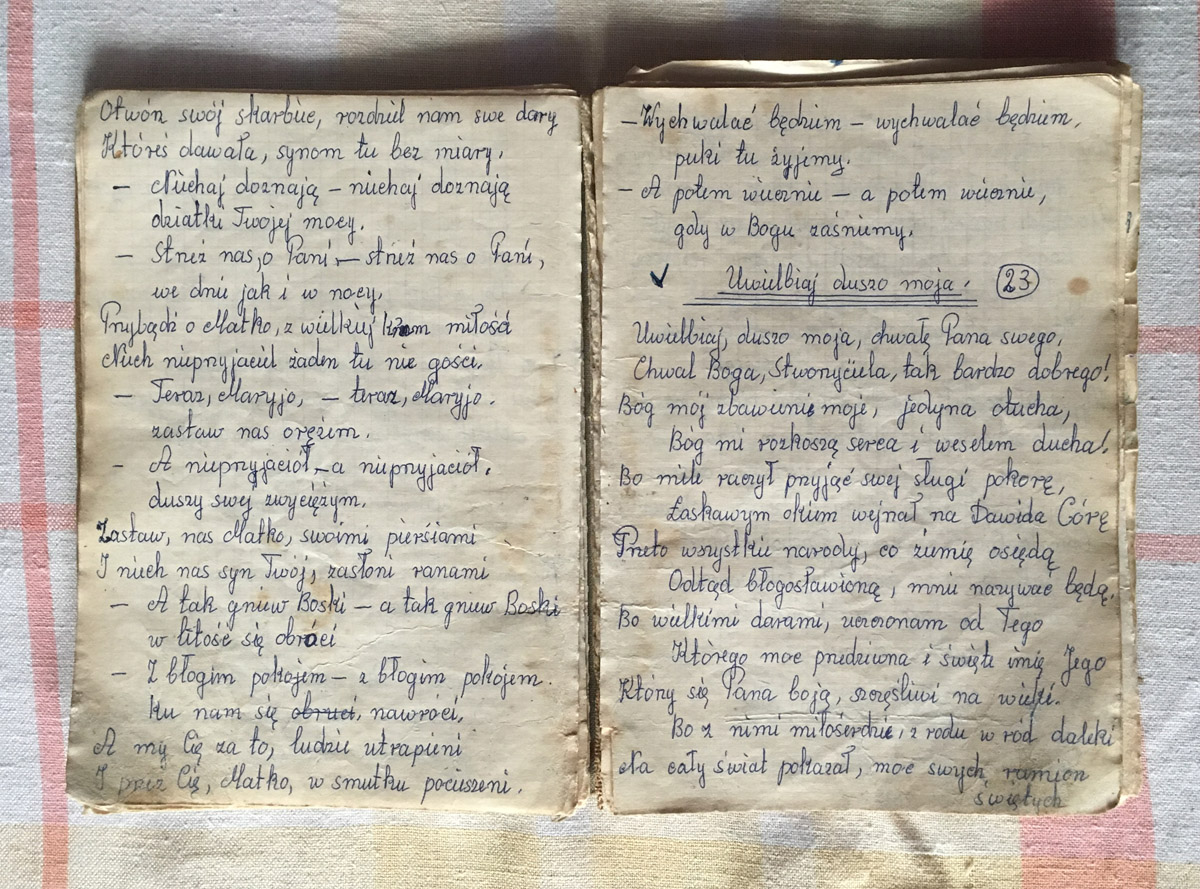 Otwórz swój skarbiec, rozdziel nam swe dary
Któreś dawała, synom tu bez miary.
– Niechaj doznają – niechaj doznają
dziatki Twojej mocy.
– Strzeż nas, o Pani, – strzeż nas o Pani,
we dnie jak i w nocy.
Przybądź o Matko, z wielkiej miłość
Niech nieprzyjaciel żaden tu nie gości.
– Teraz, Maryjo, – teraz, Maryjo.
zastaw nas orężem.
– A nieprzyjaciół, – a nieprzyjaciół.
duszy swej zwyciężym.
Zastaw, nas Matko, swoimi pierśiami
I niech nas syn Twój, zasłoni ranami
– A tak gniew Boski – a tak gniew Boski
w litość się obróci
– I błogim pokojem – z błogim pokojem.
ku nam się obruci, nawróci.
A my Cię za to, ludzie utrapieni
I przez Cię, Matko, w smutku pocieszeni.
– Wychwalać będziem – wychwalać będziem,
puki tu żyjemy.
– A potem wiecznie – a potem wiecznie,
gdy w Bogu zaśniemy.
✓ Uwielbiaj duszo moja. 23
Uwielbiaj, duszo moja, chwałę Pana swego,
Chwal Boga, Stworzyciela, tak bardzo dobrego!
Bóg mój zbawienie moje, jedyna otucha,
Bóg mi rozkoszą serca i weselem ducha!
Bo mile raczył przyjąć swej sługi pokorę,
Łaskawym okiem wejrzał na Dawida Córę
Przeto wszystkie narody, co ziemię osiędą
Odtąd błogosławioną, mnie nazywać będą.
Bo wielkimi darami, uczczonam od Tego
Którego moc przedziwna i święte imię Jego
Którzy się Pana boją, szczęśliwi na wieki.
Bo z nimi miłosierdzie, z rodu w ród daleki
Na cały świat pokazał, moc swych ramion
świętych